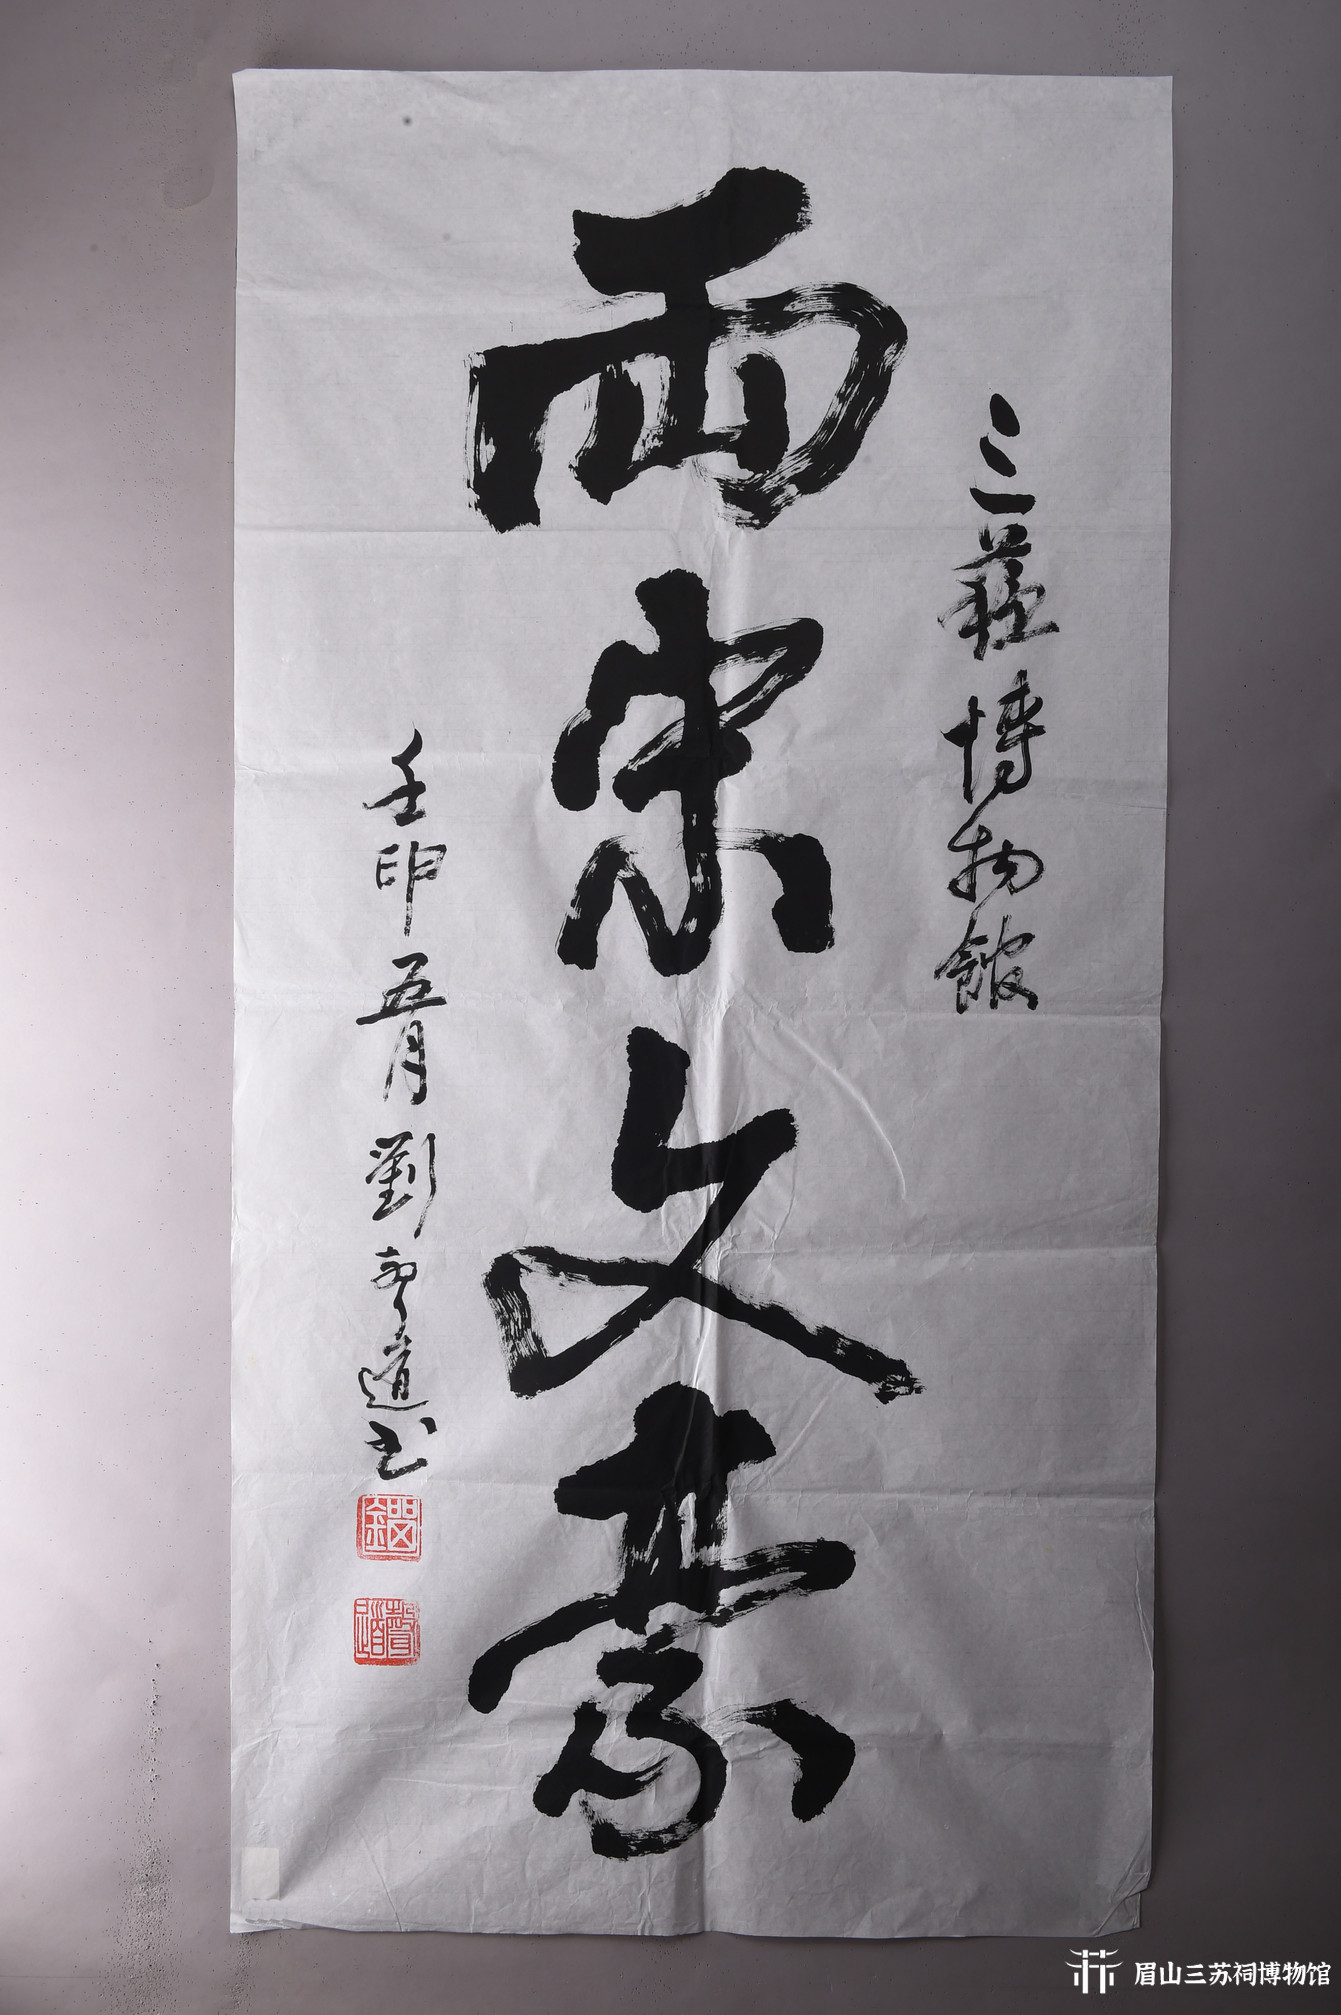 三蘇博物館
两宋文豪
壬申五月劉聲道书
眉山三苏祠博物馆